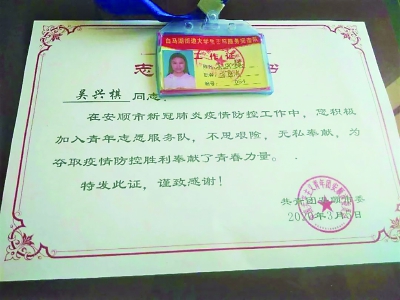 工作证
志
书
吴兴祺 同志：
在安顺市新冠肺炎疫情防控工作中，您积极
加入青年志愿服务队，不思艰险，无私奉献，为
夺取疫情防控胜利奉献了青春力量。
特发此证，谨致感谢！
共青团
市委